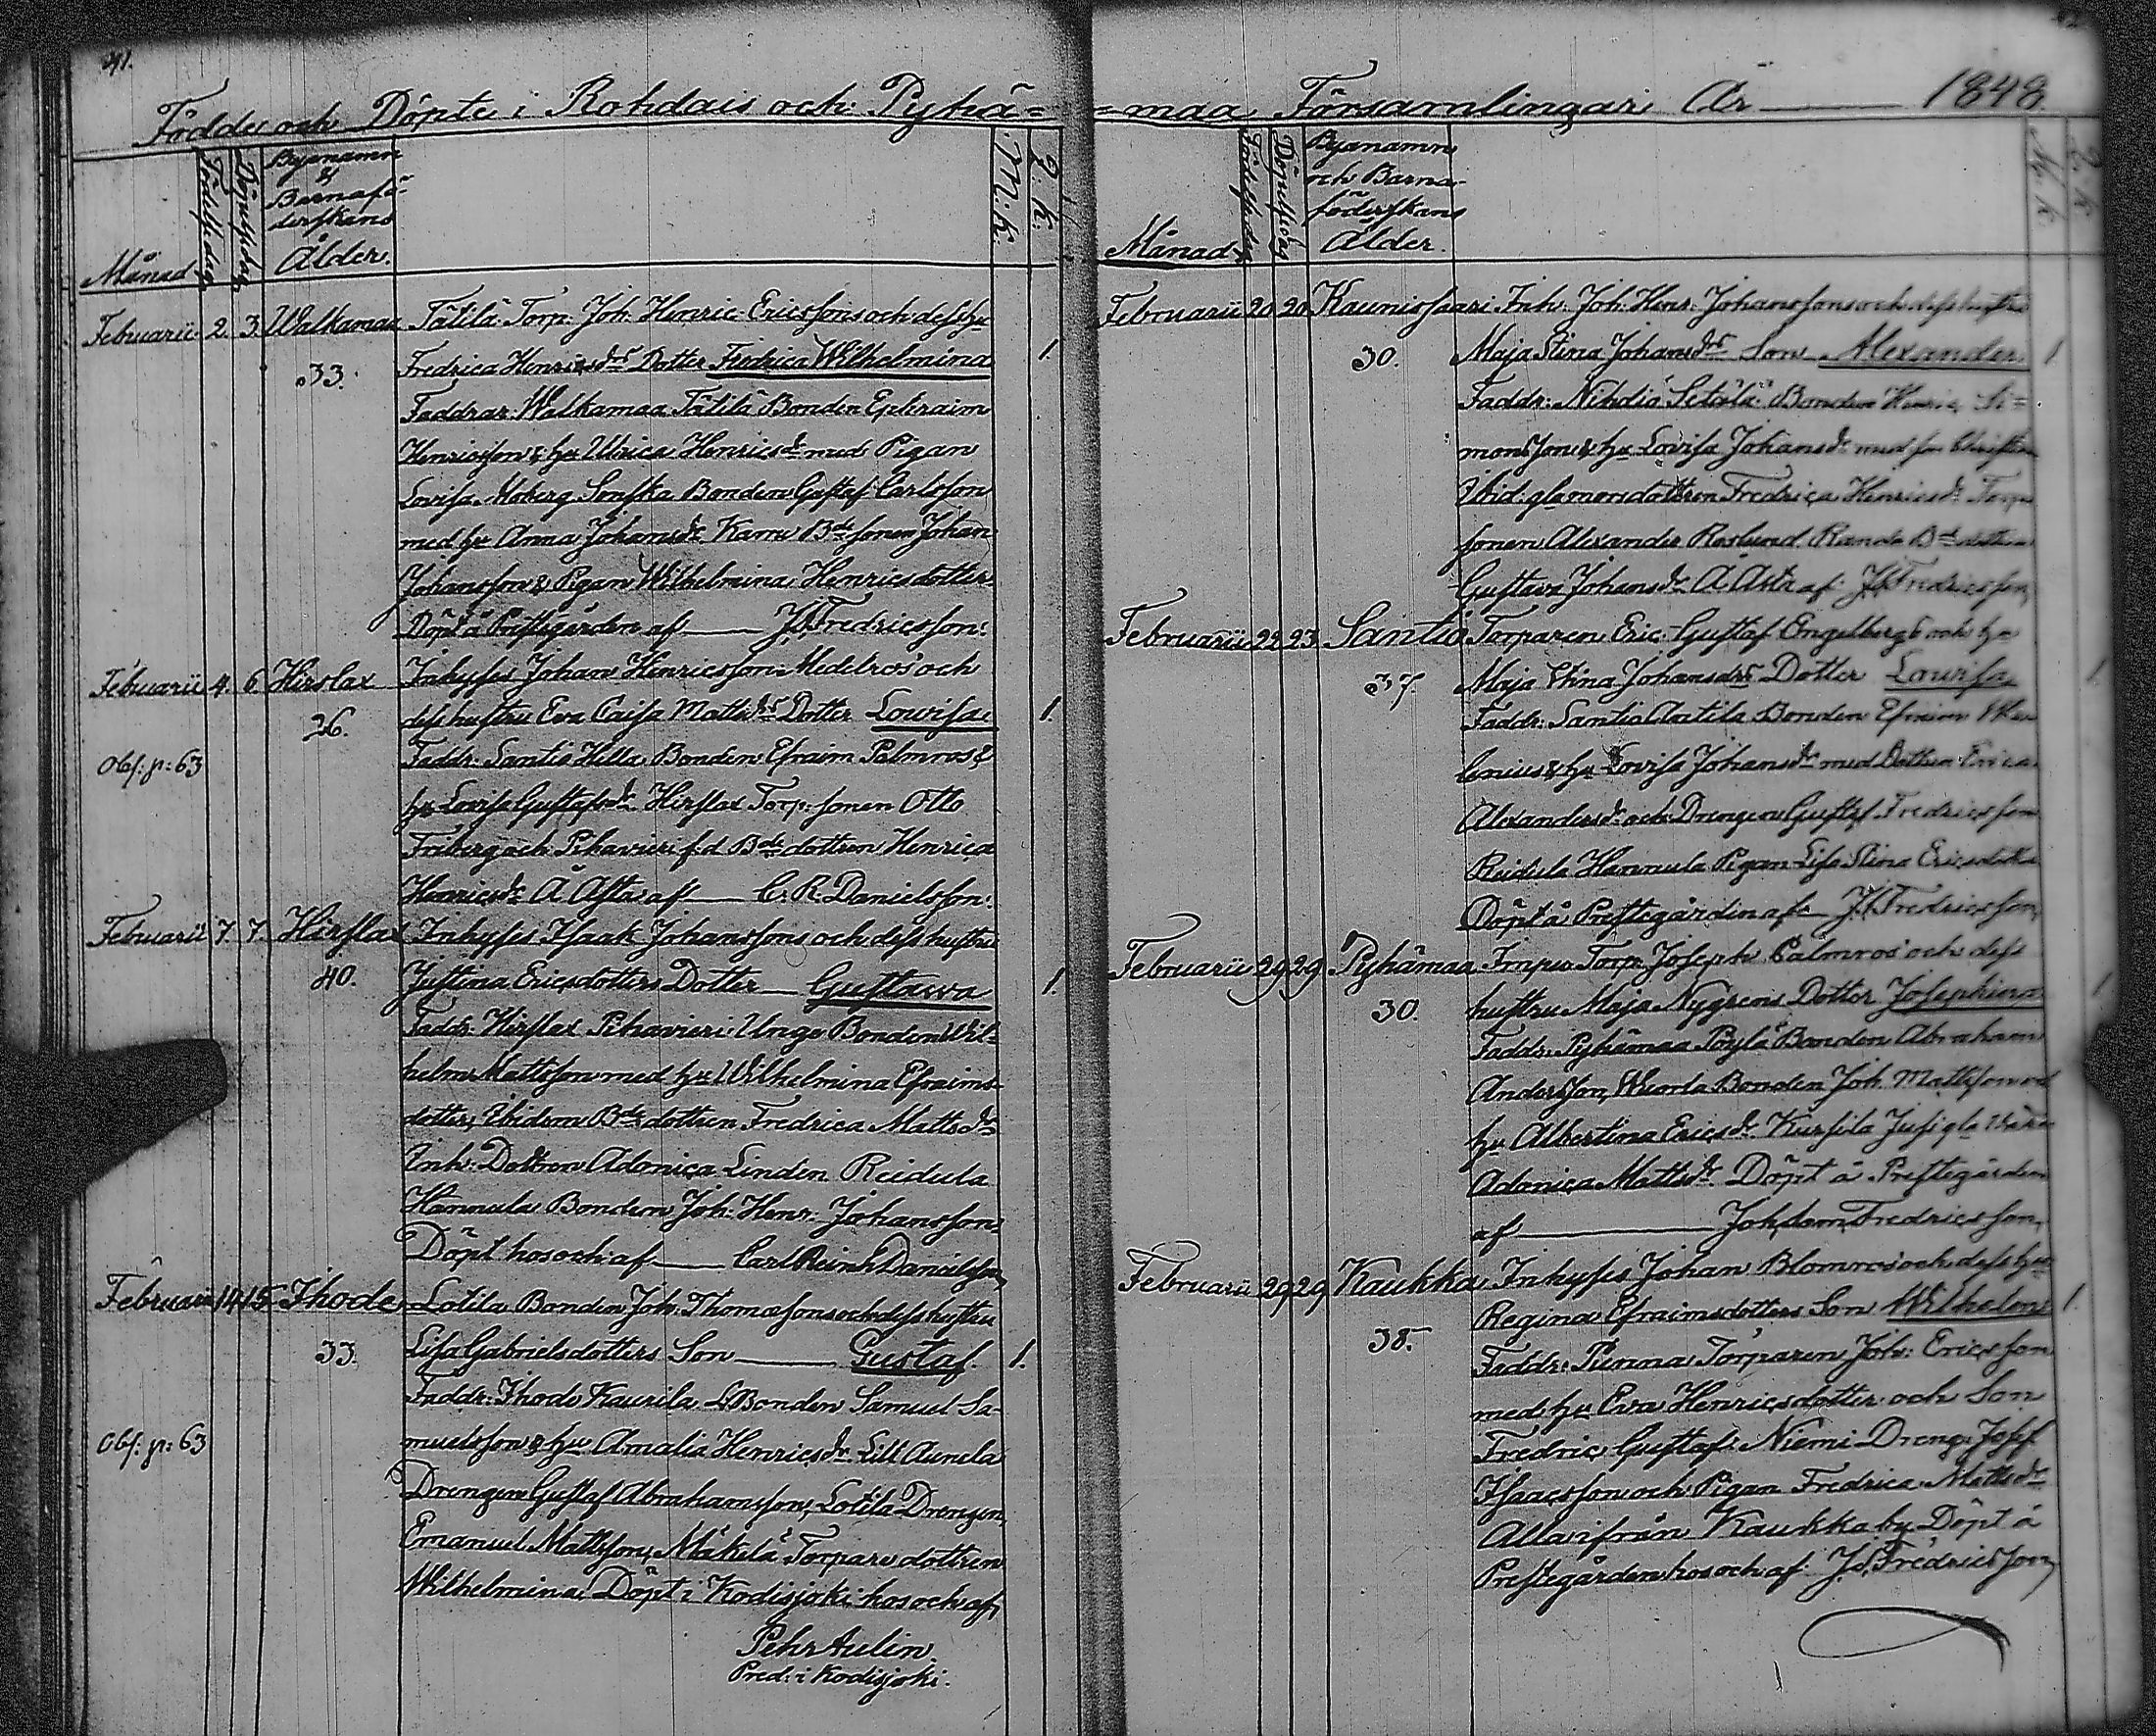 41.
Födde och Döpte i Rohdais och Pyhä=
Månad
Födelsedag
Döpelsedag
Byanamn
&
Barnafö-
derskans
Ålder.
M. k.
Q. k.
Februarii 2. 3. Walkamaa Tätilä Torp. Joh. Henric Ericssons och dess hu
33. Fredrica Henricsdrs Dotter Fredrica Wilhelmina 1.
Faddrar: Walkamaa Tätilä Bonden Ephraim
Henricsson & hu Ulrica Henricsdr med Pigan
Lovisa Moberg Sonska Bonden Gustaf Carlsson
med hu Anna Johansdr Karru Bde sonen Johan
Johansson & Pigan Wilhelmina Henricsdotter
Döpt å Prestegården af J. S. Fredricsson.
Februarii 4. 6. Hirslax Inhyses Johan Henricsson Medelros och
26. dess hustru Eva Caisa Mattsdrs Dotter Lowisa 1.
Obs: p: 63 Faddr. Santio Hilla Bonden Efraim Palmros &
hu Lovisa Gustafsdr Hirslax Torp. sonen Otto
Friberg och Pihavieri f.d Bde dottren Henrica
Henricsdr Å Åstra af C. R. Danielsson.
Februarii 7. 7. Hirslax Inhyses Isaak Johanssons och dess hustru
40. Justina Ericsdotters Dotter Gustawa 1.
Faddr. Hirslax Pihavieri Unge Bonden Wil-
helm Mattsson med hu Wilhelmina Efraims-
dotter, Ibidem Bde dottren Fredrica Mattsdr
Inh: Dottren Adonica Linden Reidula
Hannula Bonden Joh: Henr: Johansson
Döpt hos och af Carl Reinh Danielsson
Februarii 14 15 Ihode Lotila Bonden Joh. Thomassons och dess hustru
33. Lisa Gabrielsdotters Son Gustaf. 1.
Faddr: Ihode Kaurila Bonden Samuel Sa-
Obs: p: 63 muelsson & hu Amalia Henricsdr Lill Aunela
Drengen Gustaf Abrahamsson, Lotila Drengen
Emanuel Mattsson, Mäkelä Torpare dottren
Wilhelmina. Döpt i Kodisjoki hos och af
Pehr Aulin.
Pred: i Kodisjoki.
=maa Församlingar År 1848
Månad
Födelsedag
Döpelsedag
Byanamn
och Barna-
föderskans
Ålder.
M. k.
Q. k.
Februarii 20 20 Kaunissaari Inh: Joh: Henr: Johanssons och dess hustru
30. Maja Stina Johansdrs Son Alexander. 1
Faddr: Nihdiö Setälä Bonden Henric Si=
monsson & hu Lovisa Johansdr med
Ibid: gla mors dottren Fredrica Henricsdr Torp
sonen Alexander Roslund Randa Bde dottren
Gustava Johansdr Å Åstra af J. S. Fredricsson,
Februarii 22 23 Santio Torparen Eric Gustaf Engelbergs och hu
37. Maja Stina Johansdrs Dotter Lowisa 1
Faddr: Santio Antila Bonden Efraim
lenius & hu Lovisa Johansdr med Dottren Erica
Alexandersdr och Drengen Gustaf Fredricsson
Reidula Hannula Pigan Lisa Stina Ericsdotter
Döpt å Prestegården af J. S. Fredricsson,
Februarii 29 29 Pyhämaa Torp. Joseph Palmros och dess
30. hustru Maja Nygrens Dotter Josephina 1
Faddr: Pyhämaa Päylä Bonden Abraham
Andersson, Wuorla Bonden Joh. Mattsson och
hu Albertina Ericsdr Kursila
Adonica Mattsdr Döpt å Prestegården
af Joh. Sam. Fredricsson,
Februarii 29 29 Kaukka Inhyses Johan Blomros och dess hu
38. Regina Efraimsdotters Son Wilhelm 1.
Faddr: Punna Torparen Joh: Ericsson
med hu Eva Henricsdotter och Son
Fredric Gustaf. Niemi Dreng. Josef
Isaacsson och Pigan Fredrica Mattsdr
Alla ifrån Kaukka by. Döpt å
Prestegården hos och af J. S. Fredricsson